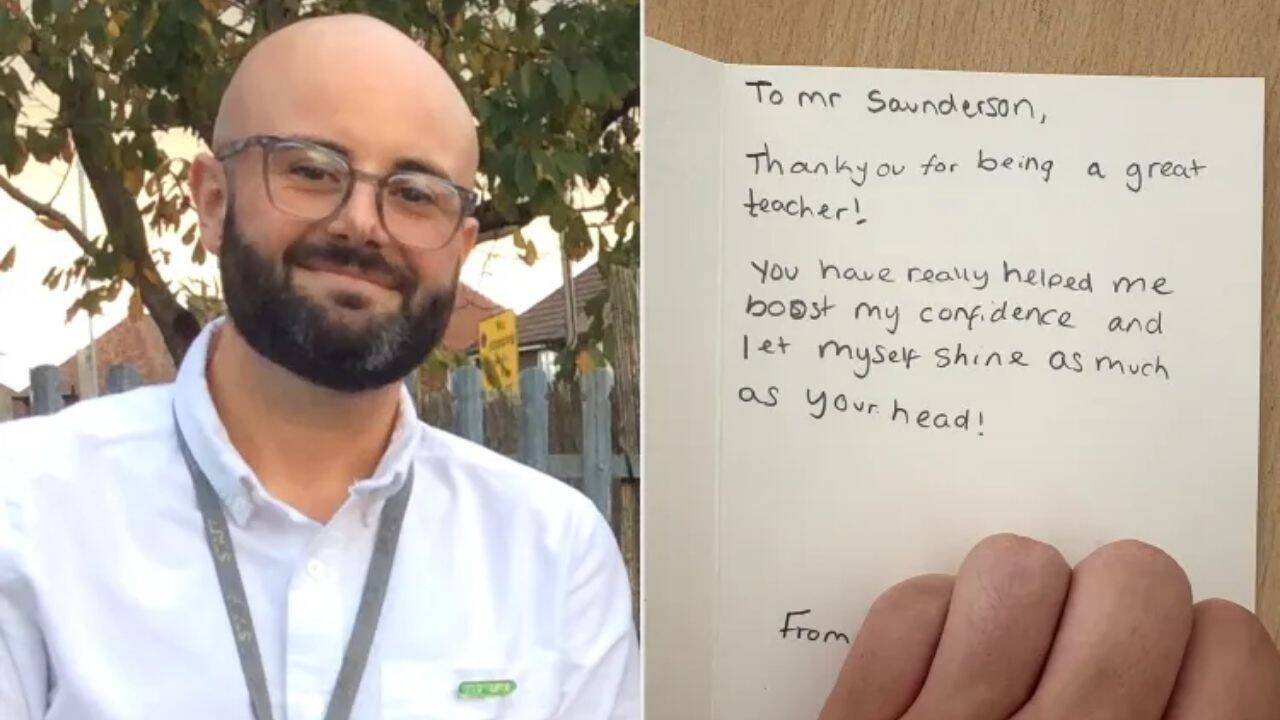 To mr Saunderson,
Thankyou for being a great
teacher!
You have really helped me
boost my confidence and
let myself shine as much
as your head!
From